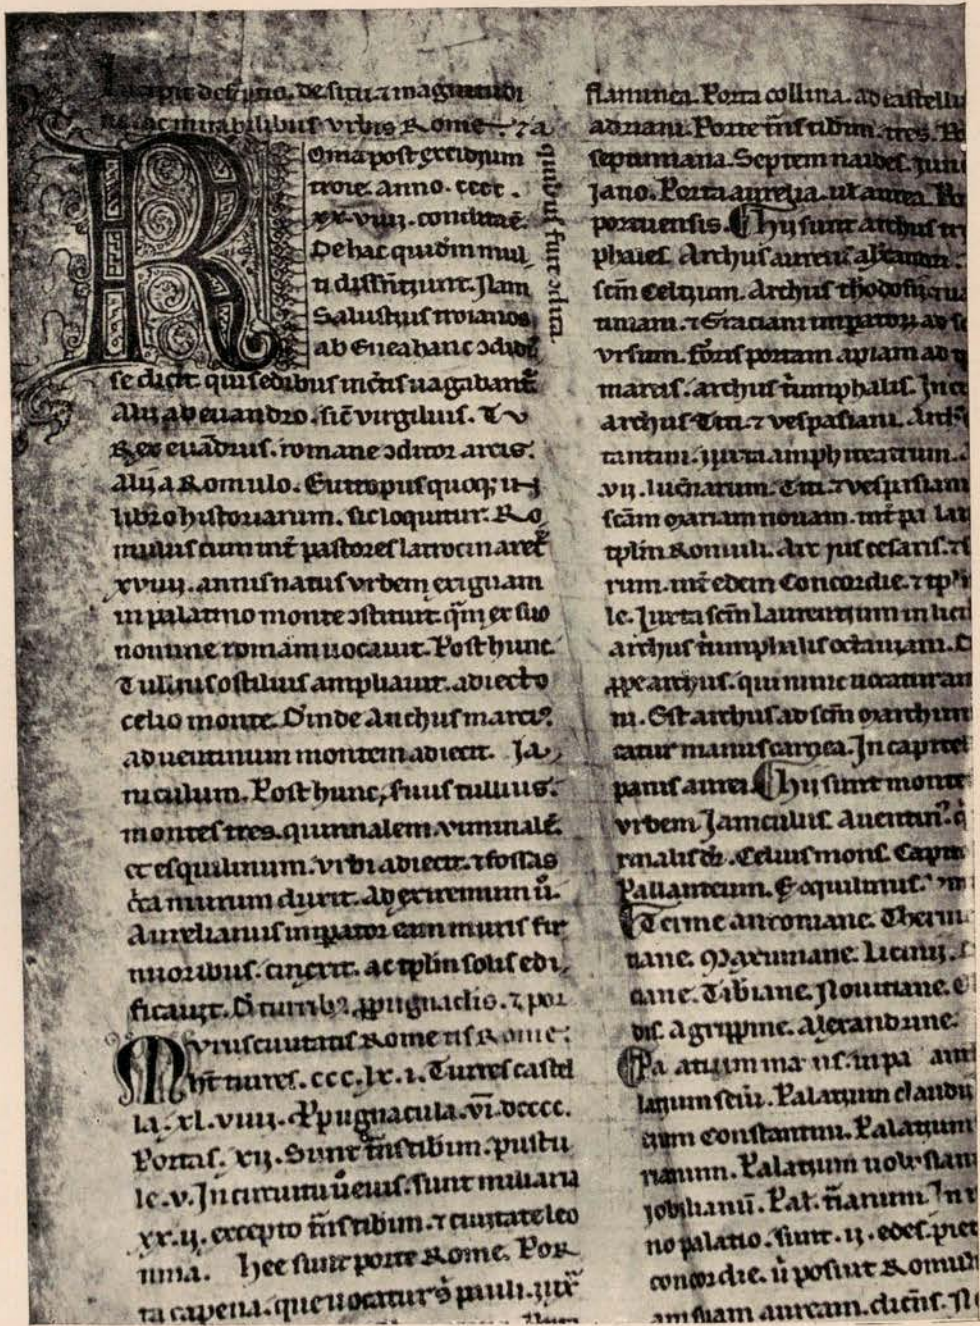 Incipit descriptio. de situ ⁊ magnitudi
ne ac mirabilibus vrbis Rome ⁊ a
quibus fuit ↄdita.
Roma post excidium
troie. anno. cccc.
xx. viiij. condita ē.
De hac quidm mul
ti dissntiunt. Nam
Salustius troianos
ab Enea hanc ↄdid
se dicit. qui sedibus inctis uagabant
Alij ab euandro. sic̄ virgilius. Tv
Rex euādrus. romane ↄditor arcis.
Alij a Romulo. Eutropius quoq; ⁊ ij
libro historiarum. sic loquitur. Ro
mulus cum int̄ pastores latrocinaret
xviiij. annis natus vrbem exiguam
in palatino monte ↄstituit. qm̄ ex suo
nomine romam uocauit. Post hunc
Tullius ostilius ampliauit. adiecto
celio monte. Dinde Anchus marciꝰ
aduentinum montem adiecit. Ja
niculum. Post hunc, siuus tullius.
montes tres. quirinalem. viminalē.
et esquilinum. vrbi adiecit. ⁊ fossas
c̄ca murum duxit. Ad extremum ū.
Aurelianus impator eam muris fir
mioribus. cinxit. ac tplm solis edi,
ficauit. D turribꝰ. ꝓpugnaclis. ⁊ por
Mvrus ciuitatis Rome tis Rome.
ht̄ turres. ccc. lx. i. Turres castel
la. xl. viiij. Ppugnacula. vī. dcccc.
Portas. xij. Sunt tn̄stibim. pustu
le. v. In circuitu ū eius. sunt miliaria
xx. ij. excepto tn̄stibim. ⁊ ciuitate leo
nina. hee sunt porte Rome. Por
ta capena. que uocatur s̄ pauli. iux̄
flaminea. Porta collina. ad castellu
adriani. Porte tn̄stibim. tres. Po
septimiana. Septem naides. iunc
jano. Porta aurelia. ul aurea. Po
portuensis. Chij sunt archus tri
phales. Archus aureus alexandri.
scm̄ Celsum. Archus thodosij. ⁊ ua
tiniani. ⁊ Graciani impatorꝝ ad s
vrsum. foris portam apiam ad
martis. archus tiumphalis. In ci
archus Titi. ⁊ vespasiani. Arch
tantini. iuxta amphiteatrum.
.vij. lucnarum. Titi. ⁊ vespasiani
scām Mariam nouam. int̄ pa lat
tplm Romuli. Arc jus cesaris. ⁊ s
rum. int̄ edem Concordie. ⁊ tpl
le. Juxta scm̄ laurentium in luci
archus tiumphalis octauiani.
ꝓpe archus. qui nunc uocatur an
ni. Est archus ad scm̄ Marchum
catur manus carnea. In capitol
panis aurei. Chij sunt monte
vrbem. Janiculus. Auentinꝰ. q̄
rinalis dr̄. Celius mons. Capit
Pallanteum. Exquilinus.
Terme antoniane. Therm
tiane. Maximiane. Licinij.
ciane. Tibiane. Nouatiane.
dis. Agrippine. Alexandrine.
Pa
latium seueri. Palatium claudij
cium Constantini. Palatium
rianum. Palatium
jobilianū. Pal. tn̄anum. In
no palatio. sunt. ij. edes. piet
concordie. ū posuit Romulu
am suam auream. dicens. No